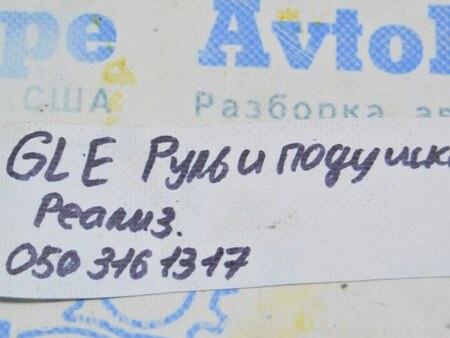 ре AvtoP
США Разборка ав
GLE Руль и подушка
Реализ.
050 316 13 17